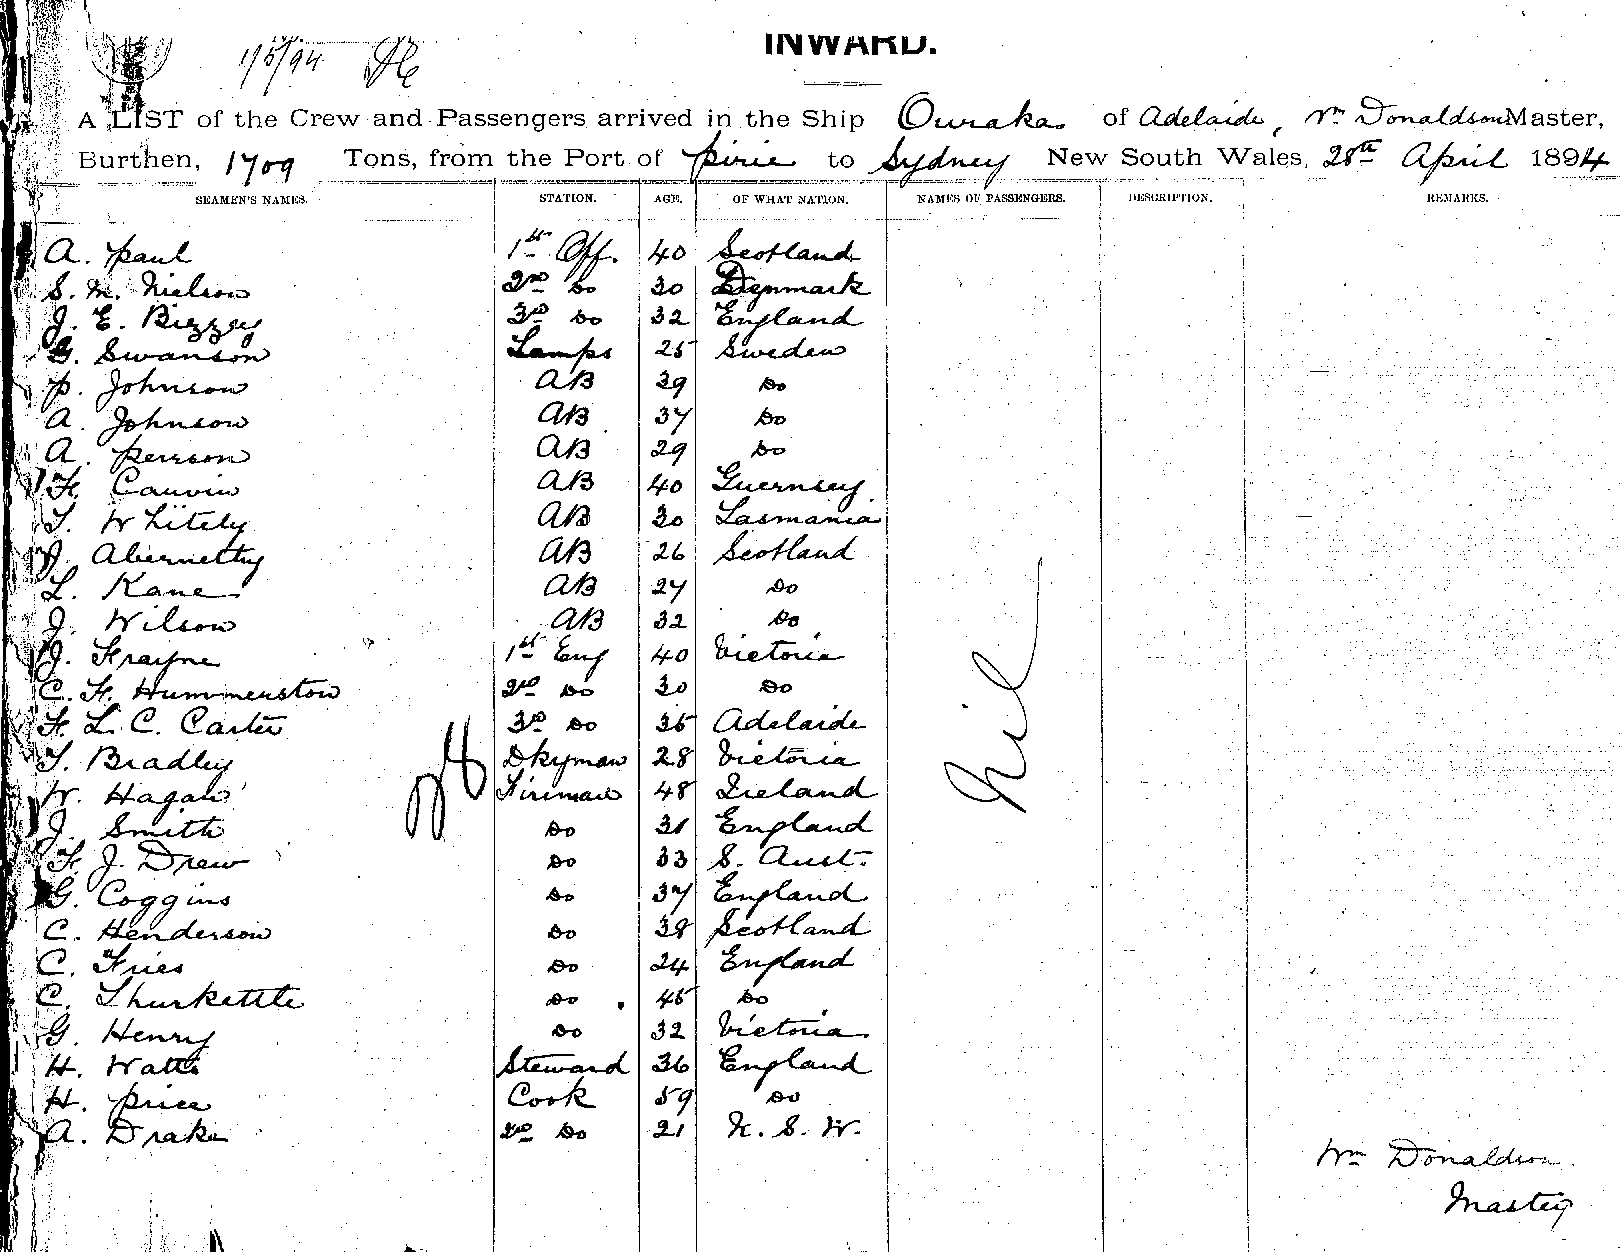 1/5/94
INWARD.
A LIST of the Crew and Passengers arrived in the Ship Ouraka of Adelaide, Wm Donaldson Master,
Burthen, 1709 Tons, from the Port of pirie to Sydney New South Wales, 28th April 1894
SEAMEN'S NAMES. STATION. AGE. OF WHAT NATION. NAMES OF PASSENGERS. DESCRIPTION. REMARKS.
A. paul 1st Off. 40 Scotland
S. M. Nielson 2nd Do 30 Denmark
J. E. Bizzey 3rd Do 32 England
G. Swanson Lamps 25 Sweden
P. Johnson AB 39 Do
A. Johnson AB 37 Do
A. person AB 29 Do
F. Cauvin AB 40 Guernsey
T. Whitely AB 30 Tasmania
J. Abernethy AB 26 Scotland
L. Kane AB 27 Do
J. Wilson AB 32 Do
J. Frayne 1st Eng 40 Victoria
C. F. Hummerston 2nd Do 30 Do
F. L. C. Carter 3rd Do 35 Adelaide
T. Bradley Dkyman 28 Victoria
W. Hagan Fireman 48 Ireland
J. Smith Do 31 England
F. J. Drew Do 33 S. Aust.
G. Coggins Do 37 England
C. Henderson Do 38 Scotland
C. Fries Do 24 England
C. Thurkettle Do 45 Do
G. Henry Do 32 Victoria
H. Watts Steward 36 England
H. price Cook 59 Do
A. Drake 2nd Do 21 N. S. W.
Nil
Wm Donaldson
Master